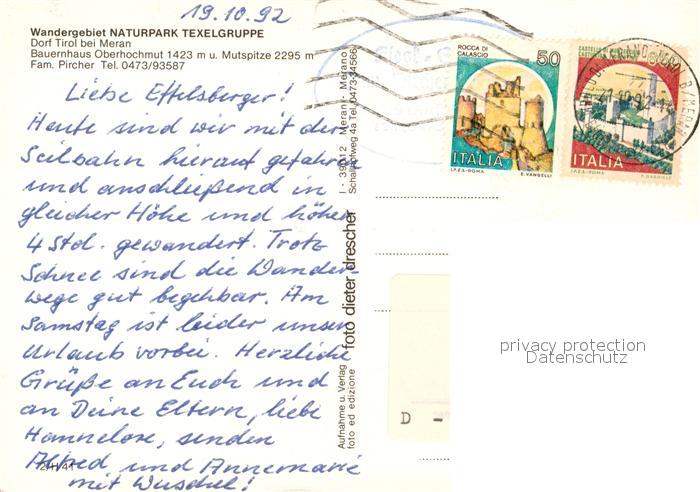 19.10.92
Wandergebiet NATURPARK TEXELGRUPPE
Dorf Tirol bei Meran
Bauernhaus Oberhochmut 1423 m u. Mutspitze 2295 m
Fam. Pircher Tel. 0473/93587
Liebe Effelsberger!
Heute sind wir mit der
Seilbahn hierauf gefahren
und anschließend in
gleicher Höhe und höher
4 Std. gewandert. Trotz
Schnee sind die Wander-
wege gut begehbar. Am
Samstag ist leider unser
Urlaub vorbei. Herzliche
Grüße an Euch und
an Deine Eltern, liebe
Hannelore, senden
Alfred und Annemarie
mit Wuschel!
Aufnahme u. Verlag
foto ed edizione
foto dieter drescher
I - 39012 Meran - Merano
Schallhofweg 4a Tel. 0473-34566
ROCCA DI
CALASCIO
50
ITALIA
I.P.Z.S.-ROMA
E. VANGELLI
ITALIA
I.P.Z.S.-ROMA
privacy protection
Datenschutz
D -